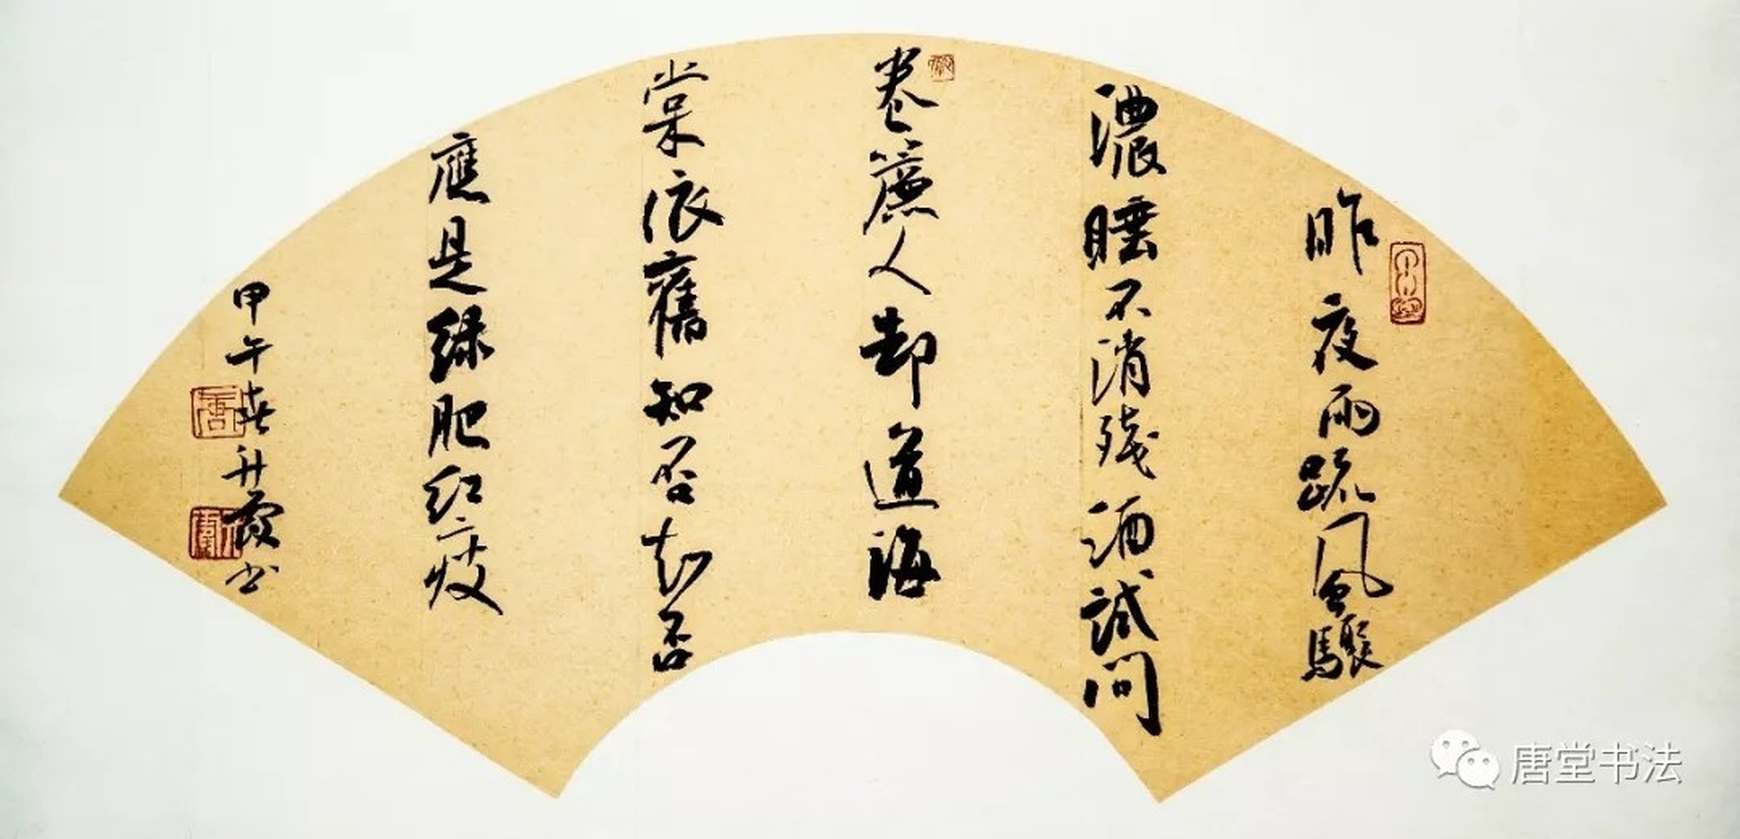 昨夜雨疏风骤
濃睡不消残酒試問
卷簾人却道海
棠依舊知否知否
應是綠肥红瘦
甲午春升霞书
唐堂书法